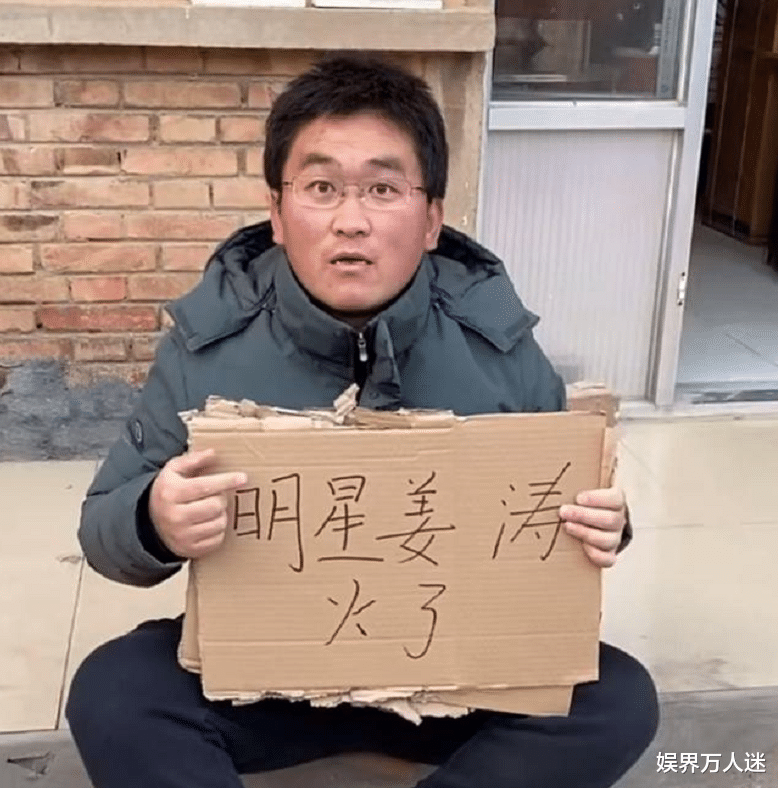 明星姜涛
火了
娱界万人迷